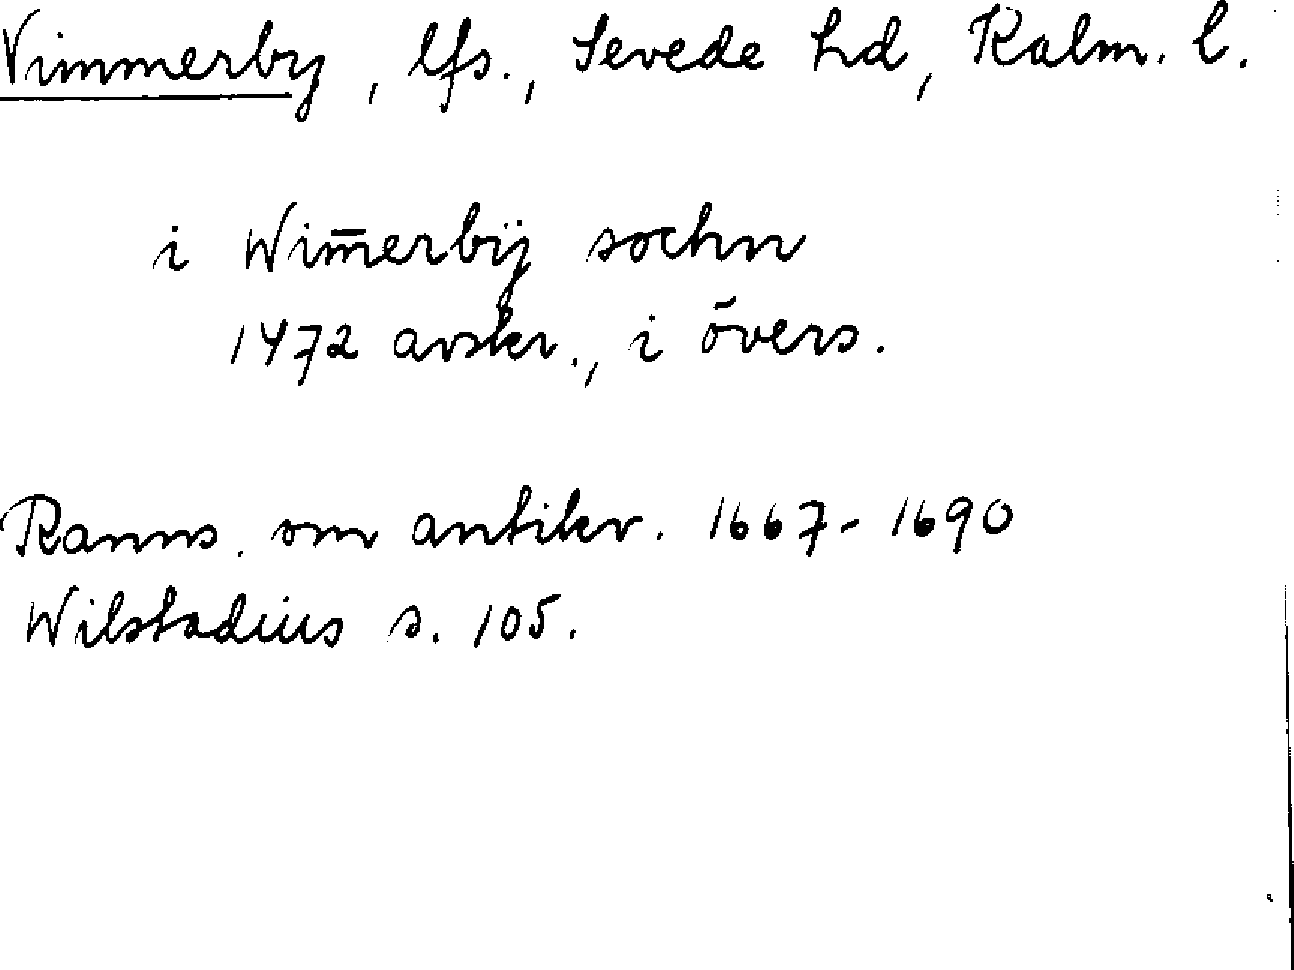 Vimmerby, lfs., Sevede hd, Kalm. l.
i Wim̅erbÿ sochn
1472 avskr., i övers.
Ranns. om antikv. 1667-1690
Wilstadius s. 105.